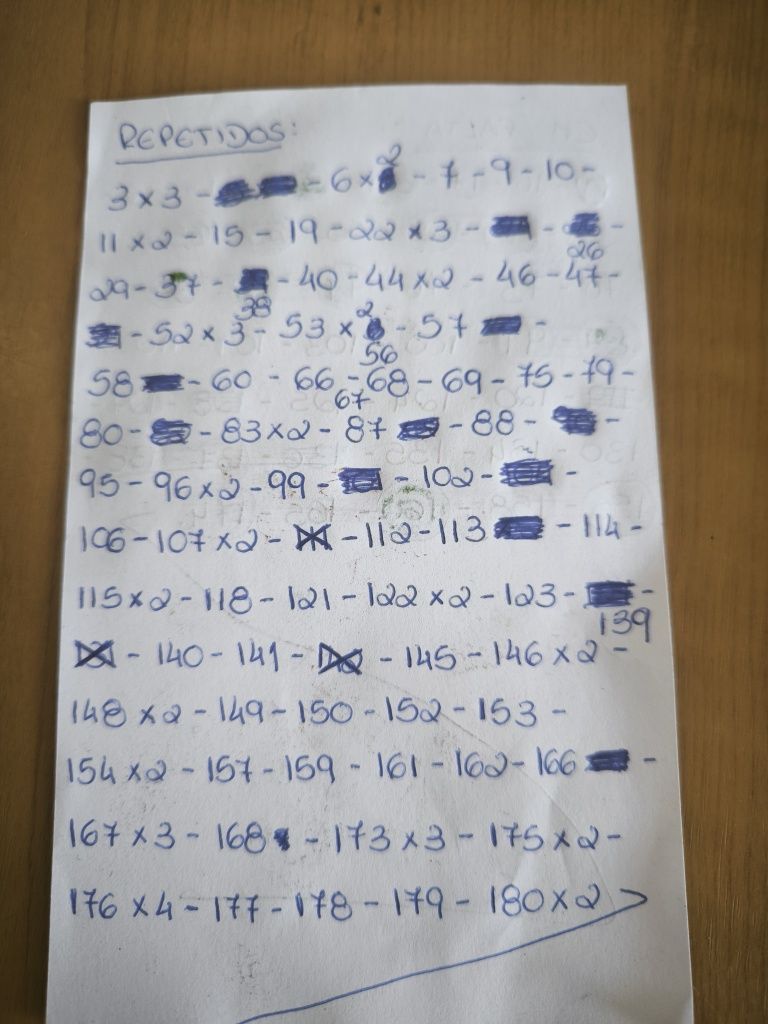 REPETIDOS:
3 x 3 - - 6 x 2 - 7 - 9 - 10 -
11 x 2 - 15 - 19 - 22 x 3 - - -
26
29 - 37 - - 40 - 44 x 2 - 46 - 47 -
38
- 52 x 3 - 53 x 2 - 57 -
56
58 - 60 - 66 - 68 - 69 - 75 - 79 -
67
80 - - 83 x 2 - 87 - 88 - -
95 - 96 x 2 - 99 - - 102 - -
106 - 107 x 2 - - 112 - 113 - 114 -
115 x 2 - 118 - 121 - 122 x 2 - 123 - -
139
- 140 - 141 - - 145 - 146 x 2 -
148 x 2 - 149 - 150 - 152 - 153 -
154 x 2 - 157 - 159 - 161 - 162 - 166 -
167 x 3 - 168 - 173 x 3 - 175 x 2 -
176 x 4 - 177 - 178 - 179 - 180 x 2